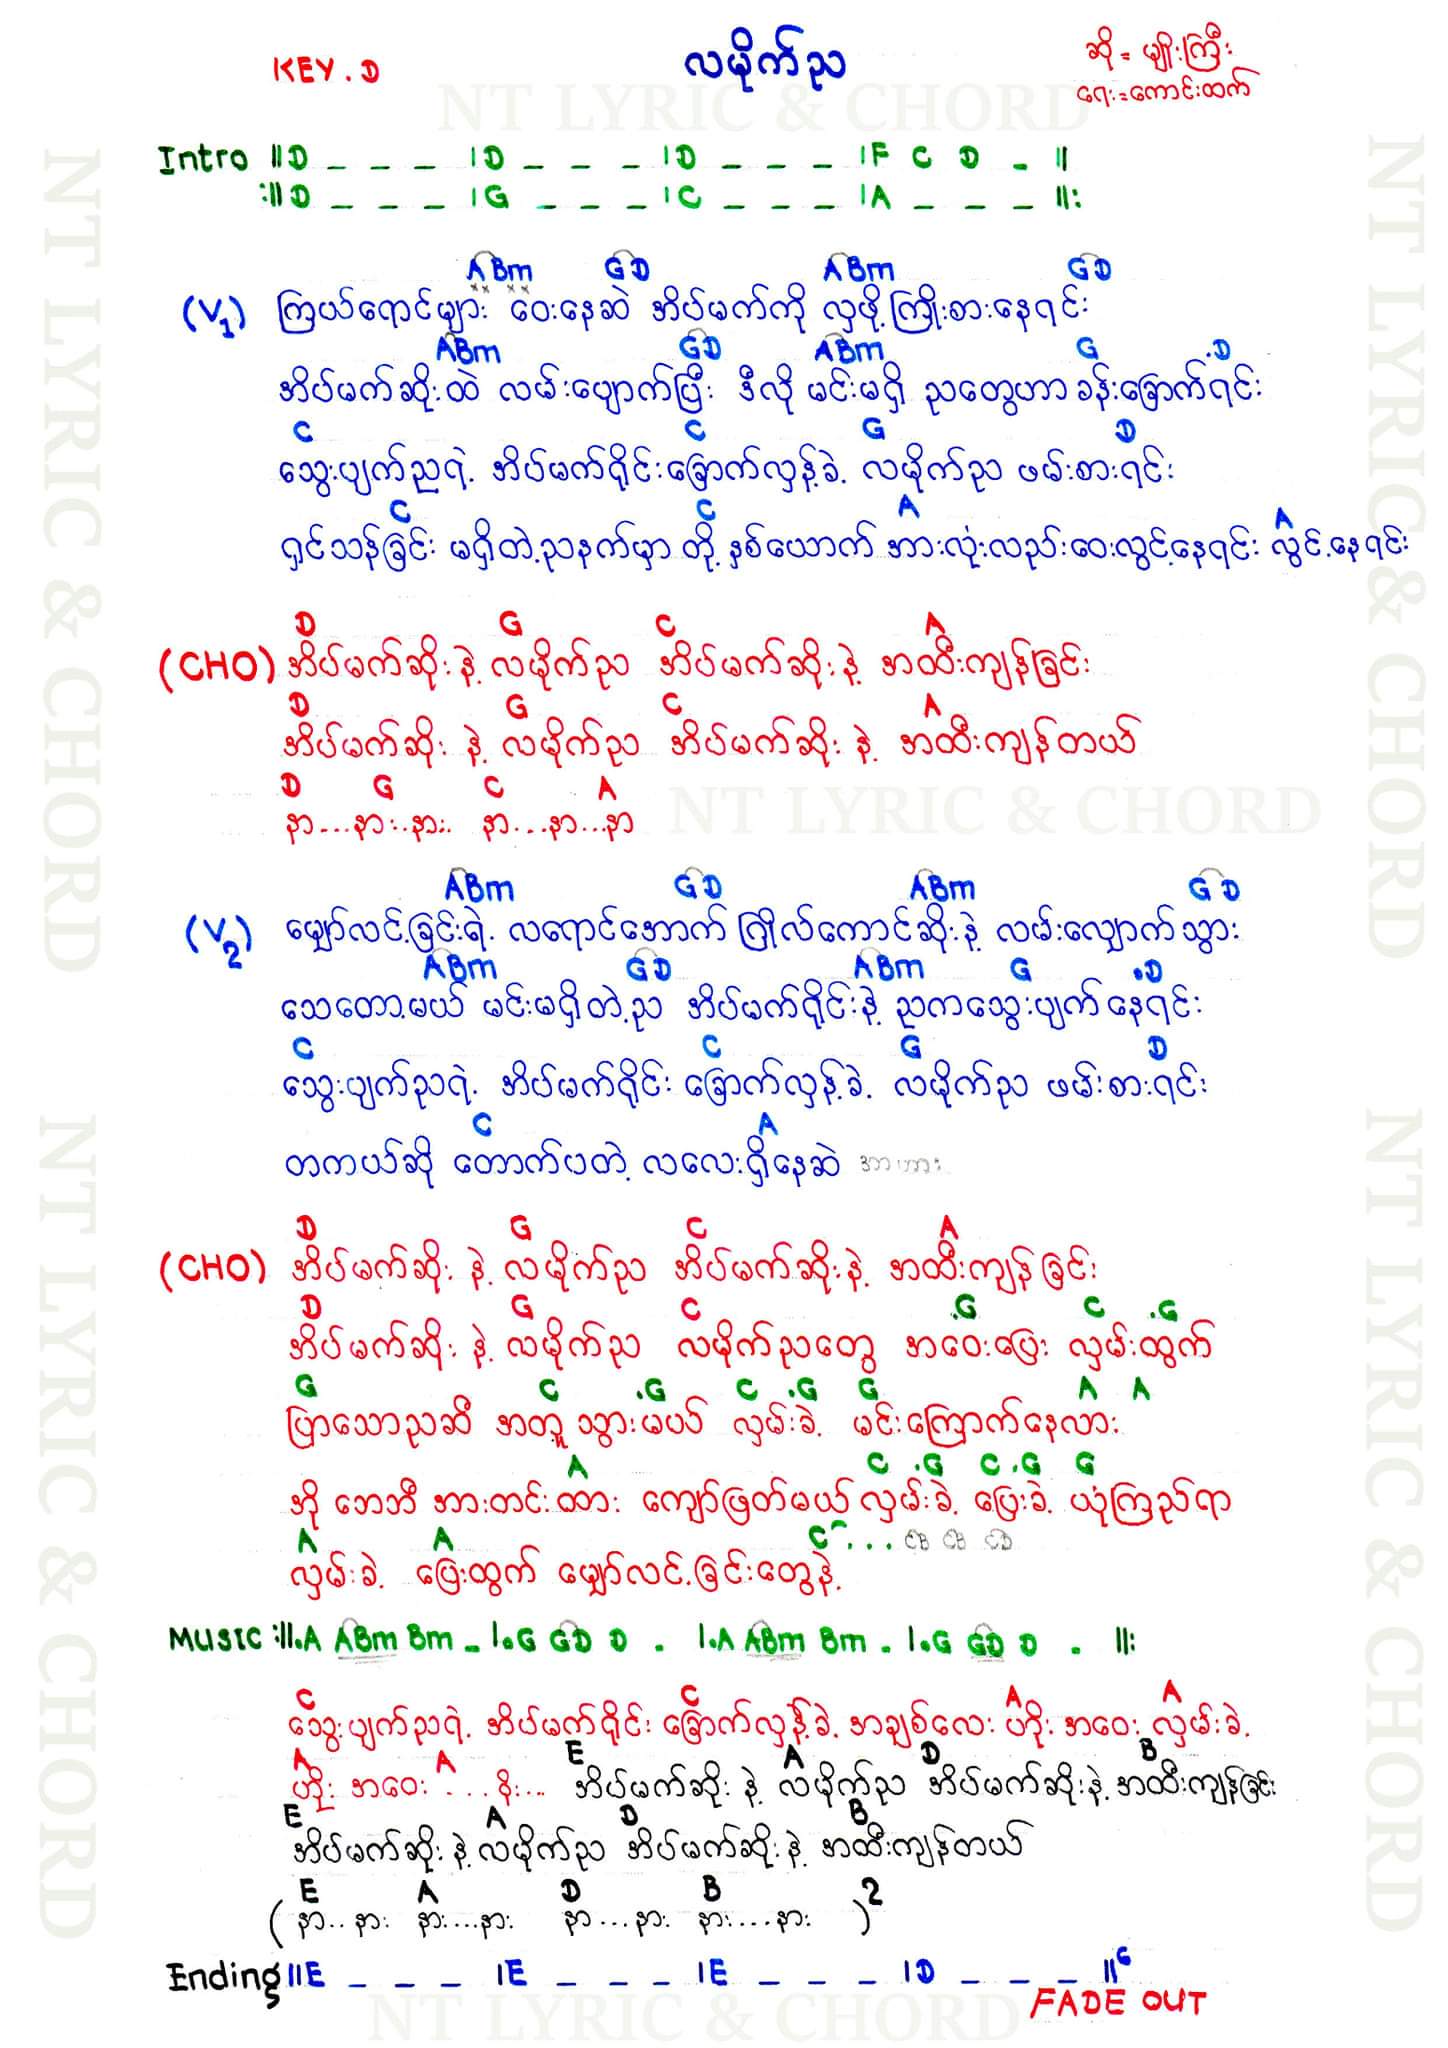 KEY. D
လမိုက်ည
ဆို = မျိုးကြီး
ရေး = ကောင်းထက်
NT LYRIC & CHORD
Intro ||D _ _ _ |D _ _ _ |D _ _ _ |F C D - ||
:||D _ _ _ |G _ _ _ |C _ _ _ |A _ _ _ ||:
A Bm G D A Bm G D
(V1) ကြယ်ရောင်များ ဝေးနေဆဲ အိပ်မက်ကို လှဖို့ ကြိုးစားနေရင်း
A Bm G D A Bm G .D
အိပ်မက်ဆိုးထဲ လမ်းပျောက်ပြီး ဒီလို မင်းမရှိ ညတွေဟာ ခန်းခြောက်ရင်း
C C G D
သွေးပျက်ညရဲ့ အိပ်မက်ရိုင်းခြောက်လှန့်ခဲ့ လမိုက်ည ဖမ်းစားရင်း
C C A A
ရှင်သန်ခြင်း မရှိတဲ့ညနက်မှာ တို့ နှစ်ယောက် အားလုံးလည်းဝေးလွင့်နေရင်း လွင့်နေရင်း
D G C A
(CHO) အိပ်မက်ဆိုးနဲ့ လမိုက်ည အိပ်မက်ဆိုးနဲ့ အထီးကျန်ခြင်း
D G C A
အိပ်မက်ဆိုး နဲ့ လမိုက်ည အိပ်မက်ဆိုး နဲ့ အထီးကျန်တယ်
D G C A
နာ...နား..နား. နာ...နာ...နာ
NT LYRIC & CHORD
A Bm G D A Bm G D
(V2) မျှော်လင့်ခြင်းရဲ့ လရောင်အောက် ဂြိုလ်ကောင်ဆိုးနဲ့ လမ်းလျှောက်သွား
A Bm G D A Bm G .D
သေတော့မယ် မင်းမရှိတဲ့ည အိပ်မက်ရိုင်းနဲ့ ညကသွေးပျက်နေရင်း
C C G D
သွေးပျက်ညရဲ့ အိပ်မက်ရိုင်း ခြောက်လှန့်ခဲ့ လမိုက်ည ဖမ်းစားရင်း
C A
တကယ်ဆို တောက်ပတဲ့ လလေးရှိနေဆဲ အာဟား
D G C A
(CHO) အိပ်မက်ဆိုး နဲ့ လမိုက်ည အိပ်မက်ဆိုးနဲ့ အထီးကျန်ခြင်း
D G C .G C .G
အိပ်မက်ဆိုး နဲ့ လမိုက်ည လမိုက်ညတွေ အဝေးပြေး လှမ်းထွက်
G C .G C .G G A A
ပြာသောညဆီ အတူသွားမယ် လှမ်းခဲ့ မင်းကြောက်နေလား
A C .G C .G G
အို ဘေဘီ အားတင်းထား ကျော်ဖြတ်မယ် လှမ်းခဲ့ ပြေးခဲ့ ယုံကြည်ရာ
A A C ... CB CB CD
လှမ်းခဲ့ ပြေးထွက် မျှော်လင့်ခြင်းတွေနဲ့
MUSIC :||.A ABm Bm - |.G GD D . |.A ABm Bm - |.G GD D . ||:
C C A A
သွေးပျက်ညရဲ့ အိပ်မက်ရိုင်း ခြောက်လှန့်ခဲ့ အချစ်လေး ဟိုး အဝေး လှမ်းခဲ့
A A E A D B
ဟိုး အဝေး ... နိး... အိပ်မက်ဆိုး နဲ့ လမိုက်ည အိပ်မက်ဆိုးနဲ့ အထီးကျန်ခြင်း
E A D B
အိပ်မက်ဆိုး နဲ့ လမိုက်ည အိပ်မက်ဆိုး နဲ့ အထီးကျန်တယ်
E A D B
( နာ..နား နား...နား နာ...နား နား...နား )2
Ending ||E _ _ _ |E _ _ _ |E _ _ _ |D _ _ _ ||6
FADE OUT
NT LYRIC & CHORD
NT LYRIC & CHORD
NT LYRIC & CHORD
NT LYRIC & CHORD
NT LYRIC & CHORD